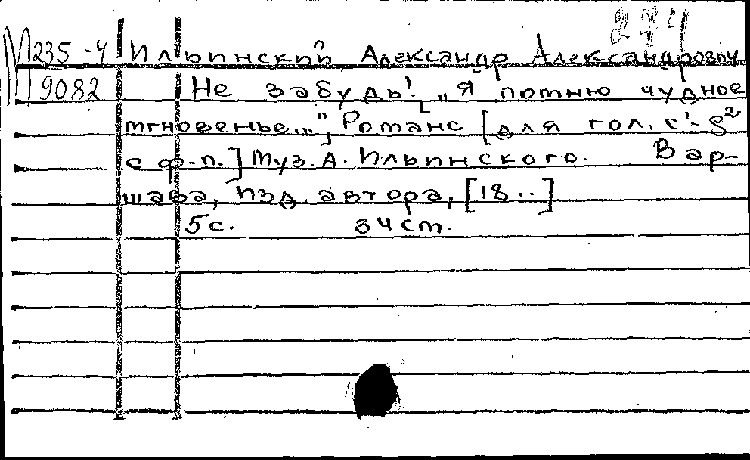 М 235-4 Ильинский Александр Александрович
П 9082 Не забудь! „Я помню чудное
мгновенье...", Романс [для гол. c'-g²
с ф-п.] Муз. А. Ильинского. Вар-
шава, изд. автора, [18..]
5с. 34 см.